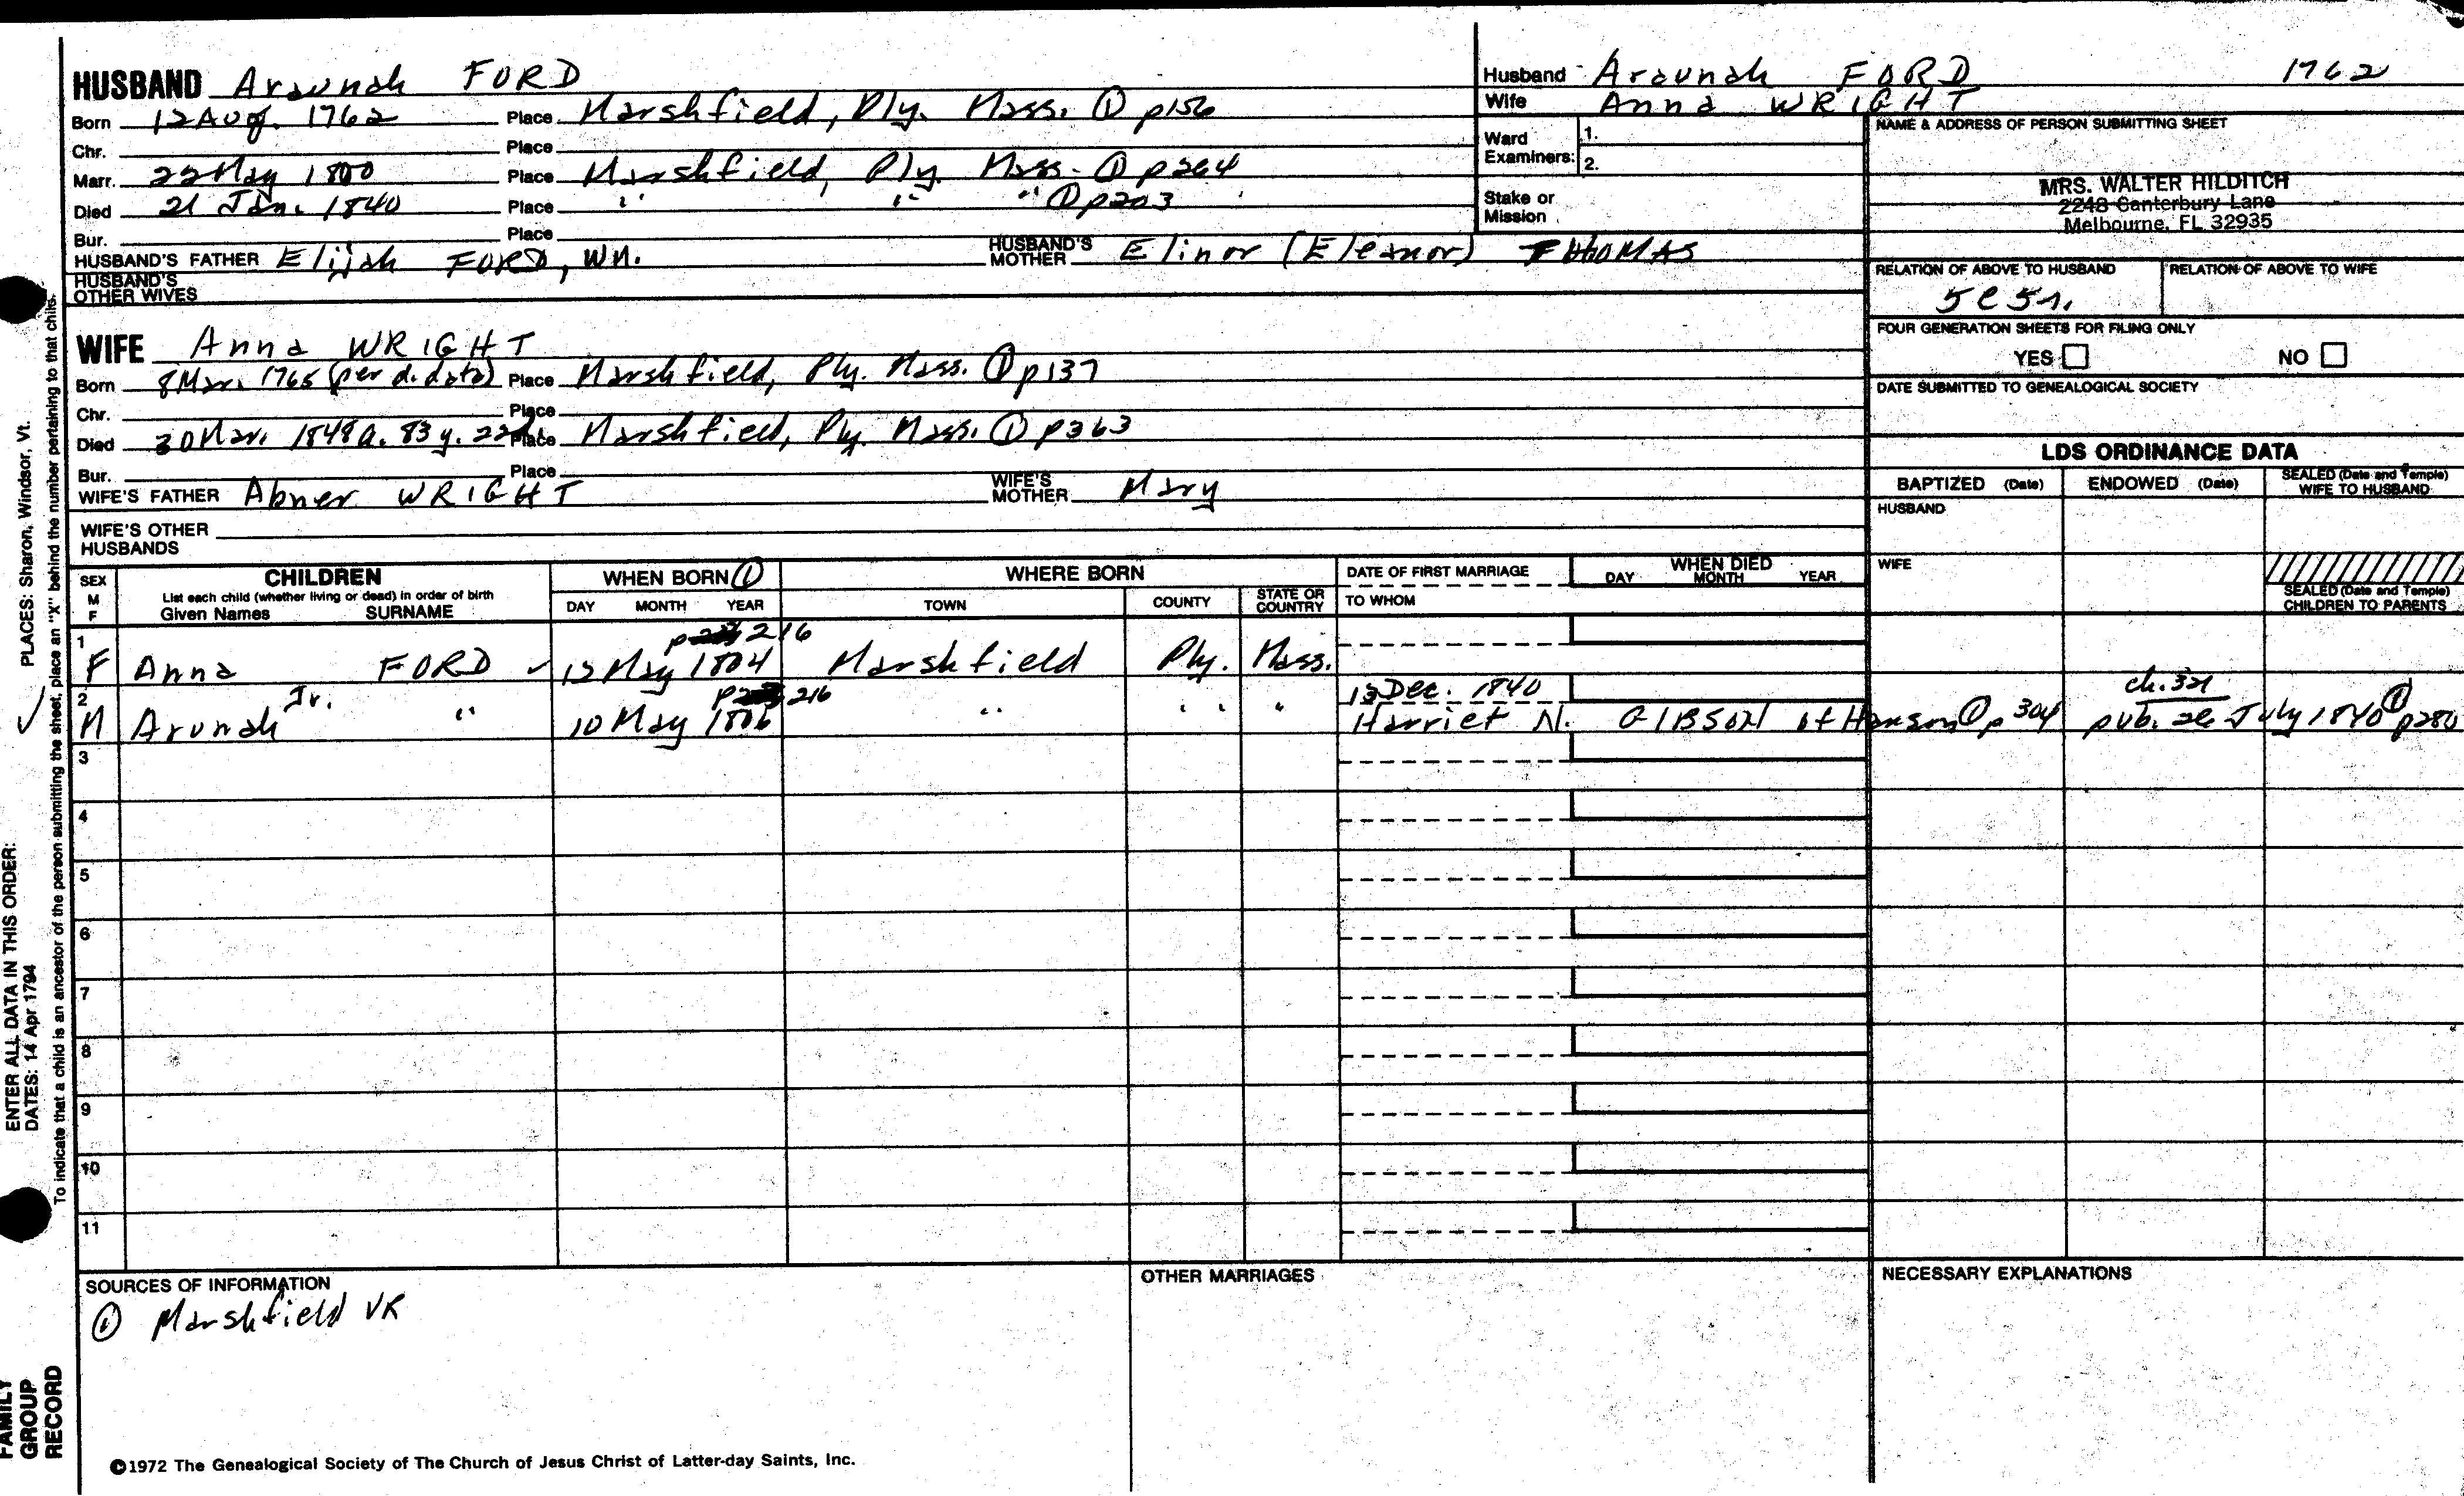 HUSBAND Araunah FORD
Born 12 Aug. 1762 Place Marshfield, Ply. Mass. ① p156
Chr. Place
Marr. 22 May 1800 Place Marshfield, Ply. Mass. ① p264
Died 21 Jan. 1840 Place " " " ① p203
Bur. Place
HUSBAND'S FATHER Elijah FORD, HUSBAND'S MOTHER Elinor (Eleanor) THOMAS
HUSBAND'S OTHER WIVES
Husband Araunah FORD 1762
Wife Anna WRIGHT
Ward Examiners: 1.
2.
Stake or Mission
NAME & ADDRESS OF PERSON SUBMITTING SHEET
MRS. WALTER HILDITCH
2248 Canterbury Lane
Melbourne, FL 32935
RELATION OF ABOVE TO HUSBAND RELATION OF ABOVE TO WIFE
FOUR GENERATION SHEETS FOR FILING ONLY
YES NO
DATE SUBMITTED TO GENEALOGICAL SOCIETY
WIFE Anna WRIGHT
Born 8 Mar. 1765 (per d. data) Place Marshfield, Ply. Mass. ① p137
Chr. Place
Died 30 Mar. 1848 a. 83 y. 22d. Place Marshfield, Ply. Mass. ① p363
Bur. Place
WIFE'S FATHER Abner WRIGHT WIFE'S MOTHER Mary
WIFE'S OTHER HUSBANDS
LDS ORDINANCE DATA
BAPTIZED (Date) ENDOWED (Date) SEALED (Date and Temple) WIFE TO HUSBAND
HUSBAND
WIFE
SEALED (Date and Temple) CHILDREN TO PARENTS
SEX M F CHILDREN WHEN BORN ① WHERE BORN DATE OF FIRST MARRIAGE WHEN DIED
List each child (whether living or dead) in order of birth
Given Names SURNAME DAY MONTH YEAR TOWN COUNTY STATE OR COUNTRY TO WHOM DAY MONTH YEAR
1 216
F Anna FORD 12 May 1804 Marshfield Ply. Mass.
2 Jr. 216 13 Dec. 1840 ch. 321
M Arunah " 10 May 1806 " " " Harriet N. GIBSON of Hanson ① p304 pub. 26 July 1840 ① p280
3
4
5
6
7
8
9
10
11
SOURCES OF INFORMATION
① Marshfield VR
OTHER MARRIAGES
NECESSARY EXPLANATIONS
©1972 The Genealogical Society of The Church of Jesus Christ of Latter-day Saints, Inc.
ENTER ALL DATA IN THIS ORDER:
DATES: 14 Apr 1794 PLACES: Sharon, Windsor, Vt.
To indicate that a child is an ancestor of the person submitting the sheet, place an "X" behind the number pertaining to that child.
FAMILY
GROUP
RECORD